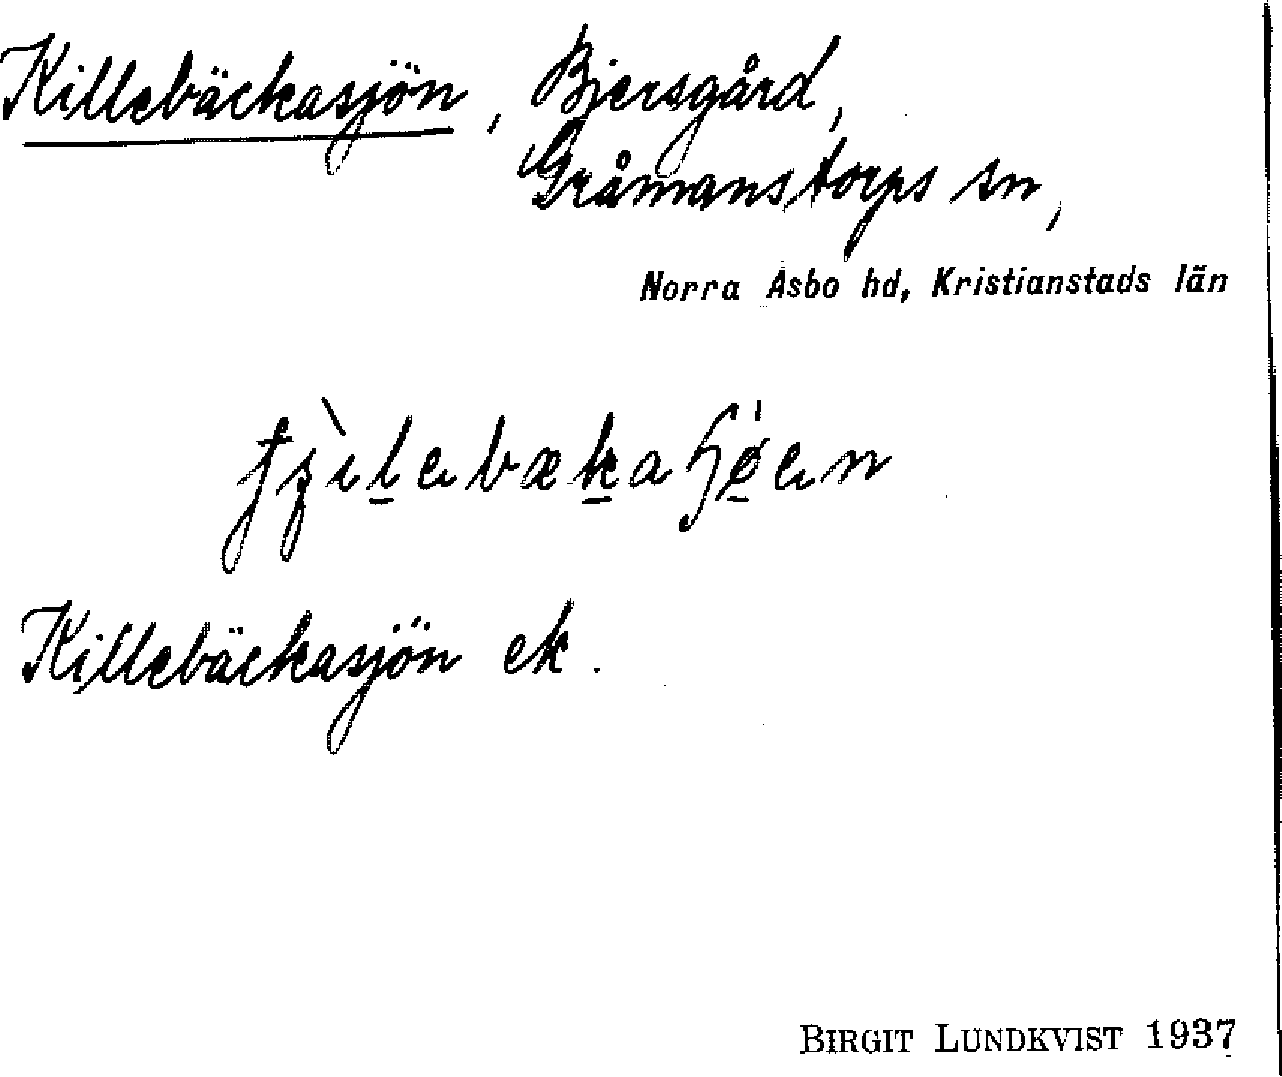 Killebäckasjön, Bjersgård,
Gråmanstorps sn,
Norra Åsbo hd, Kristianstads län
Killebäckasjön ek.
BIRGIT LUNDKVIST 1937